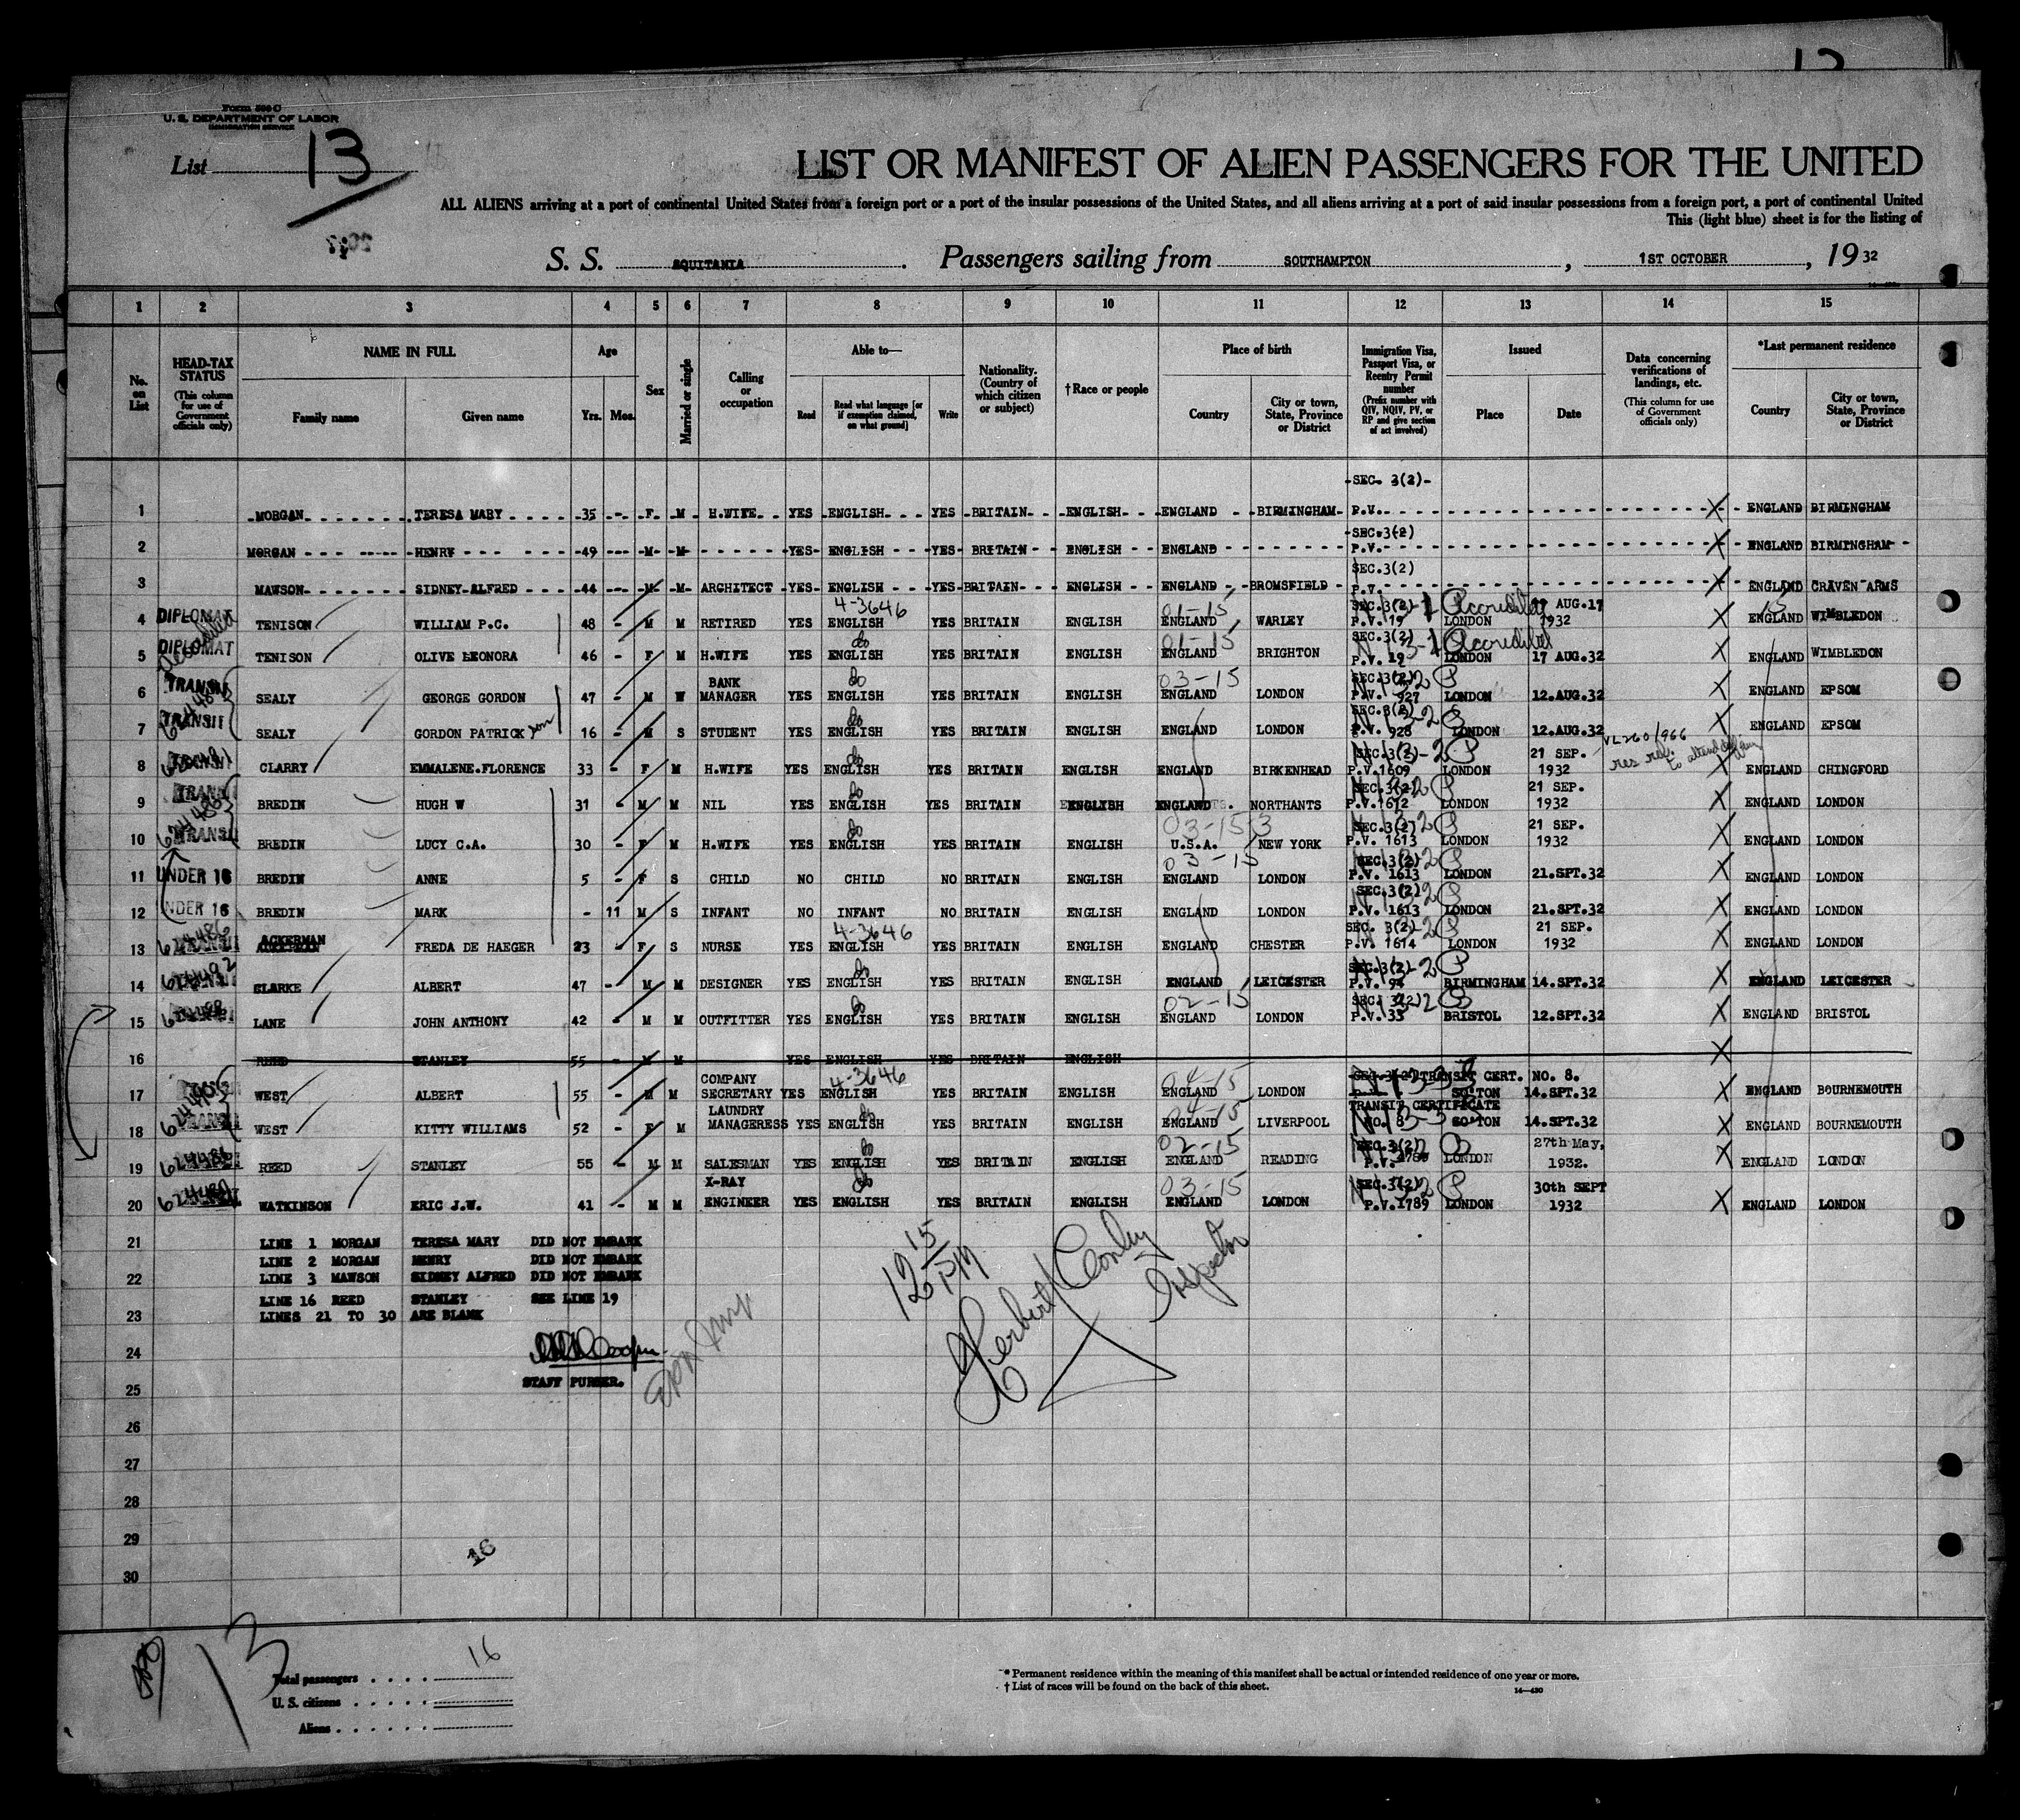 13
Form 500 C
U. S. DEPARTMENT OF LABOR
IMMIGRATION SERVICE
List 13
LIST OR MANIFEST OF ALIEN PASSENGERS FOR THE UNITED
ALL ALIENS arriving at a port of continental United States from a foreign port or a port of the insular possessions of the United States, and all aliens arriving at a port of said insular possessions from a foreign port, a port of continental United
This (light blue) sheet is for the listing of
S. S. AQUITANIA. Passengers sailing from SOUTHAMPTON, 1ST OCTOBER, 1932
1 2 3 4 5 6 7 8 9 10 11 12 13 14 15
No. on List
HEAD-TAX STATUS (This column for use of Government officials only)
NAME IN FULL
Family name Given name
Age
Yrs. Mos.
Sex
Married or single
Calling or occupation
Able to—
Read Read what language [or if exemption claimed, on what ground] Write
Nationality. (Country of which citizen or subject)
†Race or people
Place of birth
Country City or town, State, Province or District
Immigration Visa, Passport Visa, or Reentry Permit number (Prefix number with QIV, NQIV, PV, or RP and give section of act involved)
Issued
Place Date
Data concerning verifications of landings, etc. (This column for use of Government officials only)
*Last permanent residence
Country City or town, State, Province or District
SEC. 3(2)
1 MORGAN TERESA MARY 35 - F M H.WIFE YES ENGLISH YES BRITAIN ENGLISH ENGLAND BIRMINGHAM P.V. X ENGLAND BIRMINGHAM
SEC.3(2)
2 MORGAN HENRY 49 - M M YES ENGLISH YES BRITAIN ENGLISH ENGLAND P.V. X ENGLAND BIRMINGHAM
SEC.3(2)
3 MAWSON SIDNEY ALFRED 44 - M M ARCHITECT YES ENGLISH YES BRITAIN ENGLISH ENGLAND BROMSFIELD P.V. X ENGLAND CRAVEN ARMS
DIPLOMAT 4-3646 01-15 SEC.3(2) Accredited AUG.17
4 TENISON WILLIAM P.C. 48 - M M RETIRED YES ENGLISH YES BRITAIN ENGLISH ENGLAND WARLEY P.V. 19 LONDON 1932 X ENGLAND WIMBLEDON
DIPLOMAT do 01-15 SEC.3(2) Accredited
5 TENISON OLIVE LEONORA 46 - F M H.WIFE YES ENGLISH YES BRITAIN ENGLISH ENGLAND BRIGHTON P.V. 19 LONDON 17 AUG.32 X ENGLAND WIMBLEDON
TRANSIT BANK do 03-15 SEC.3(2)
6 SEALY GEORGE GORDON 47 - M W MANAGER YES ENGLISH YES BRITAIN ENGLISH ENGLAND LONDON P.V. 927 LONDON 12.AUG.32 X ENGLAND EPSOM
TRANSIT do SEC.3(2)
7 SEALY GORDON PATRICK son 16 - M S STUDENT YES ENGLISH YES BRITAIN ENGLISH ENGLAND LONDON P.V. 928 LONDON 12.AUG.32 X ENGLAND EPSOM
do SEC.3(2) 21 SEP.
8 CLARRY EMMALENE.FLORENCE 33 - F M H.WIFE YES ENGLISH YES BRITAIN ENGLISH ENGLAND BIRKENHEAD P.V.1609 LONDON 1932 X ENGLAND CHINGFORD
do SEC.3(2) 21 SEP.
9 BREDIN HUGH W 31 - M M NIL YES ENGLISH YES BRITAIN ENGLISH ENGLAND NORTHANTS P.V.1612 LONDON 1932 X ENGLAND LONDON
do 03-15-3 SEC.3(2) 21 SEP.
10 BREDIN LUCY C.A. 30 - F M H.WIFE YES ENGLISH YES BRITAIN ENGLISH U.S.A. NEW YORK P.V. 1613 LONDON 1932 X ENGLAND LONDON
03-15 SEC.3(2)
11 UNDER 16 BREDIN ANNE 5 - F S CHILD NO CHILD NO BRITAIN ENGLISH ENGLAND LONDON P.V. 1613 LONDON 21.SPT.32 X ENGLAND LONDON
SEC.3(2)
12 UNDER 16 BREDIN MARK - 11 M S INFANT NO INFANT NO BRITAIN ENGLISH ENGLAND LONDON P.V. 1613 LONDON 21.SPT.32 X ENGLAND LONDON
ACKERMAN 4-3646 SEC. 3(2) 21 SEP.
13 FREDA DE HAEGER 23 - F S NURSE YES ENGLISH YES BRITAIN ENGLISH ENGLAND CHESTER P.V. 1614 LONDON 1932 X ENGLAND LONDON
do SEC.3(2)
14 CLARKE ALBERT 47 - M M DESIGNER YES ENGLISH YES BRITAIN ENGLISH ENGLAND LEICESTER P.V. 94 BIRMINGHAM 14.SPT.32 X ENGLAND LEICESTER
do 02-15 SEC. 3(2)
15 LANE JOHN ANTHONY 42 - M M OUTFITTER YES ENGLISH YES BRITAIN ENGLISH ENGLAND LONDON P.V. 33 BRISTOL 12.SPT.32 X ENGLAND BRISTOL
16 REED STANLEY 55 - M M YES ENGLISH YES BRITAIN ENGLISH X
COMPANY 4-3646 04-15 TRANSIT CERT. NO. 8.
17 WEST ALBERT 55 - M M SECRETARY YES ENGLISH YES BRITAIN ENGLISH ENGLAND LONDON SO'TON 14.SPT.32 X ENGLAND BOURNEMOUTH
LAUNDRY do 04-15 TRANSIT CERTIFICATE
18 WEST KITTY WILLIAMS 52 - F M MANAGERESS YES ENGLISH YES BRITAIN ENGLISH ENGLAND LIVERPOOL NO. 8 SO'TON 14.SPT.32 X ENGLAND BOURNEMOUTH
do 02-15 SEC.3(2) 27th May,
19 REED STANLEY 55 - M M SALESMAN YES ENGLISH YES BRITAIN ENGLISH ENGLAND READING P.V. LONDON 1932. X ENGLAND LONDON
X-RAY do 03-15 SEC.3(2) 30th SEPT
20 WATKINSON ERIC J.W. 41 - M M ENGINEER YES ENGLISH YES BRITAIN ENGLISH ENGLAND LONDON P.V.1789 LONDON 1932 X ENGLAND LONDON
21 LINE 1 MORGAN TERESA MARY DID NOT EMBARK
LINE 2 MORGAN HENRY DID NOT EMBARK
22 LINE 3 MAWSON SIDNEY ALFRED DID NOT EMBARK
LINE 16 REED STANLEY SEE LINE 19
23 LINES 21 TO 30 ARE BLANK
12 15 PM
Herbert Conley Inspector
24
STAFF PURSER.
25
26
27
28
29
16
30
13
Total passengers 16
U. S. citizens
Aliens
* Permanent residence within the meaning of this manifest shall be actual or intended residence of one year or more.
† List of races will be found on the back of this sheet.
14—430